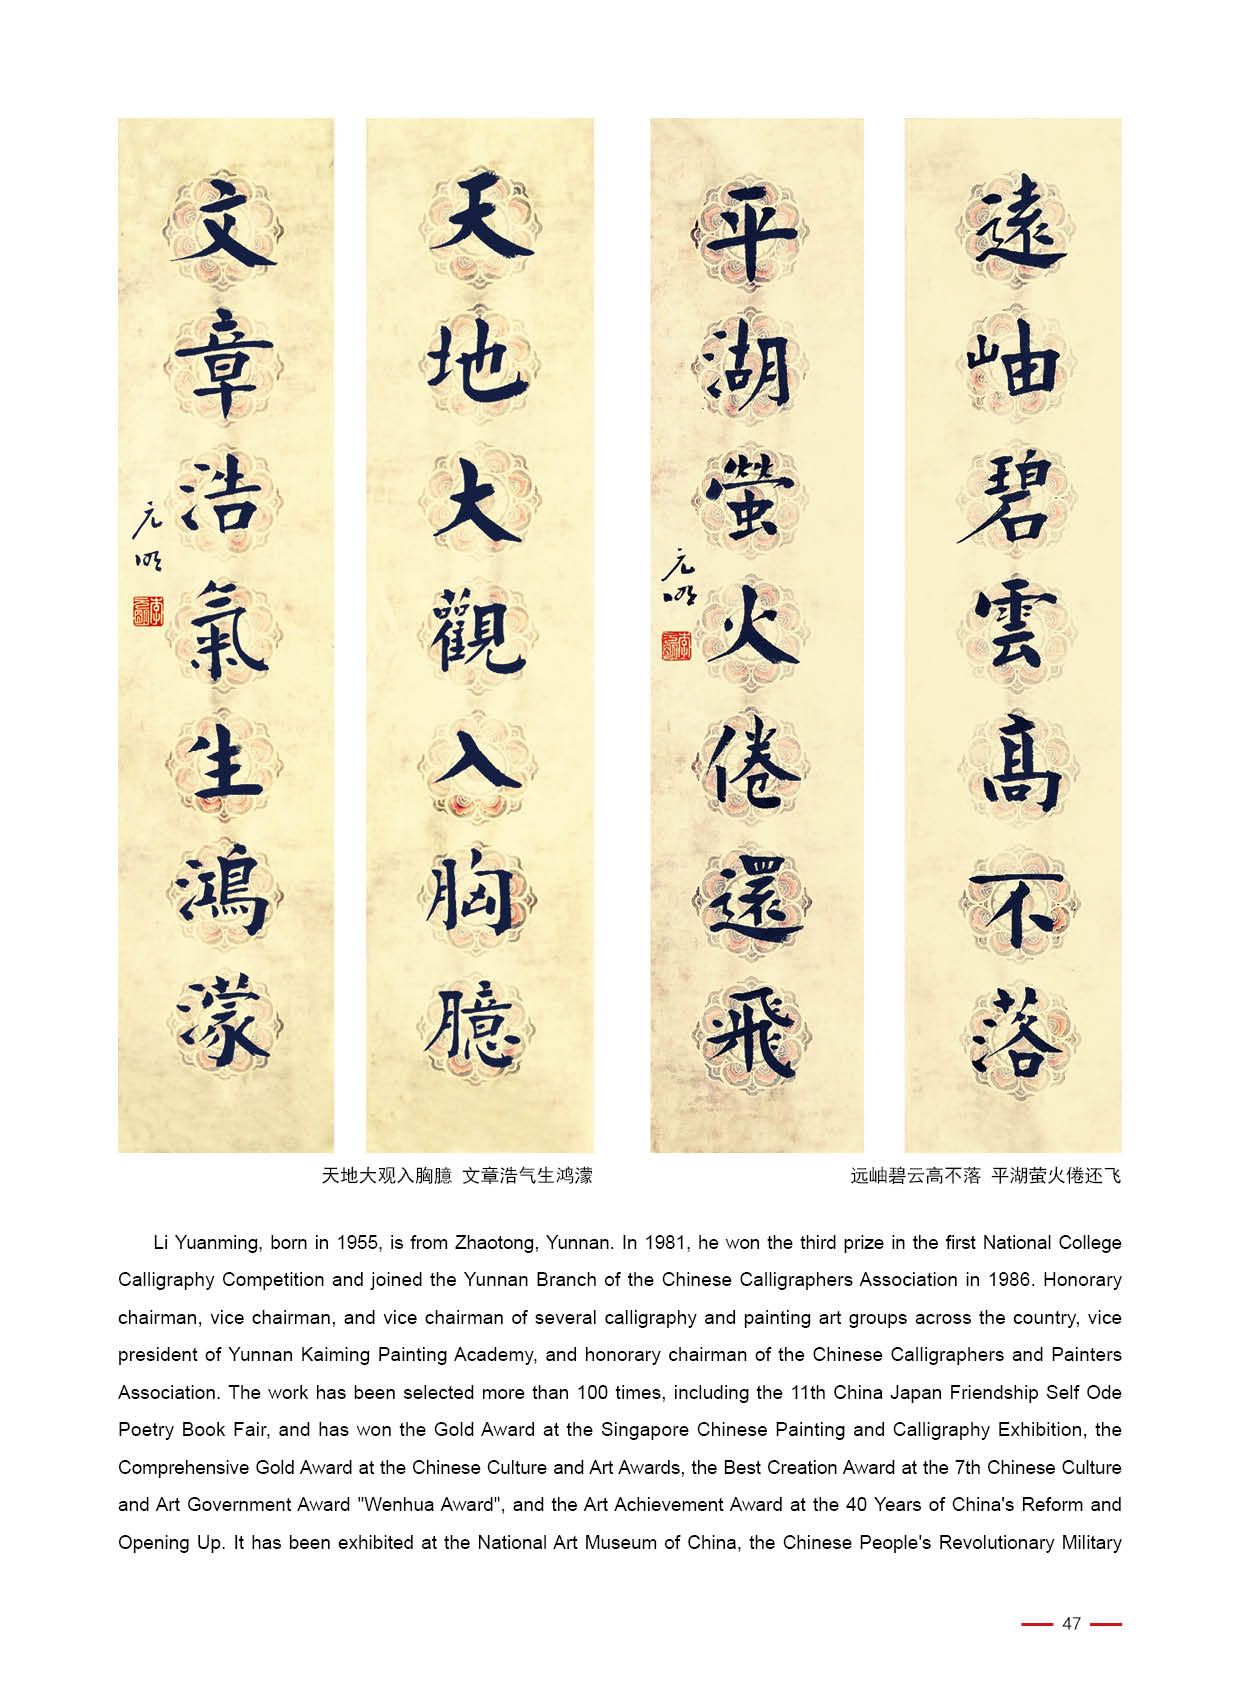 遠岫碧雲高不落
平湖螢火倦還飛
元明
天地大觀入胸臆
文章浩氣生鴻濛
元明
天地大观入胸臆 文章浩气生鸿濛
远岫碧云高不落 平湖萤火倦还飞
Li Yuanming, born in 1955, is from Zhaotong, Yunnan. In 1981, he won the third prize in the first National College
Calligraphy Competition and joined the Yunnan Branch of the Chinese Calligraphers Association in 1986. Honorary
chairman, vice chairman, and vice chairman of several calligraphy and painting art groups across the country, vice
president of Yunnan Kaiming Painting Academy, and honorary chairman of the Chinese Calligraphers and Painters
Association. The work has been selected more than 100 times, including the 11th China Japan Friendship Self Ode
Poetry Book Fair, and has won the Gold Award at the Singapore Chinese Painting and Calligraphy Exhibition, the
Comprehensive Gold Award at the Chinese Culture and Art Awards, the Best Creation Award at the 7th Chinese Culture
and Art Government Award "Wenhua Award", and the Art Achievement Award at the 40 Years of China's Reform and
Opening Up. It has been exhibited at the National Art Museum of China, the Chinese People's Revolutionary Military
47